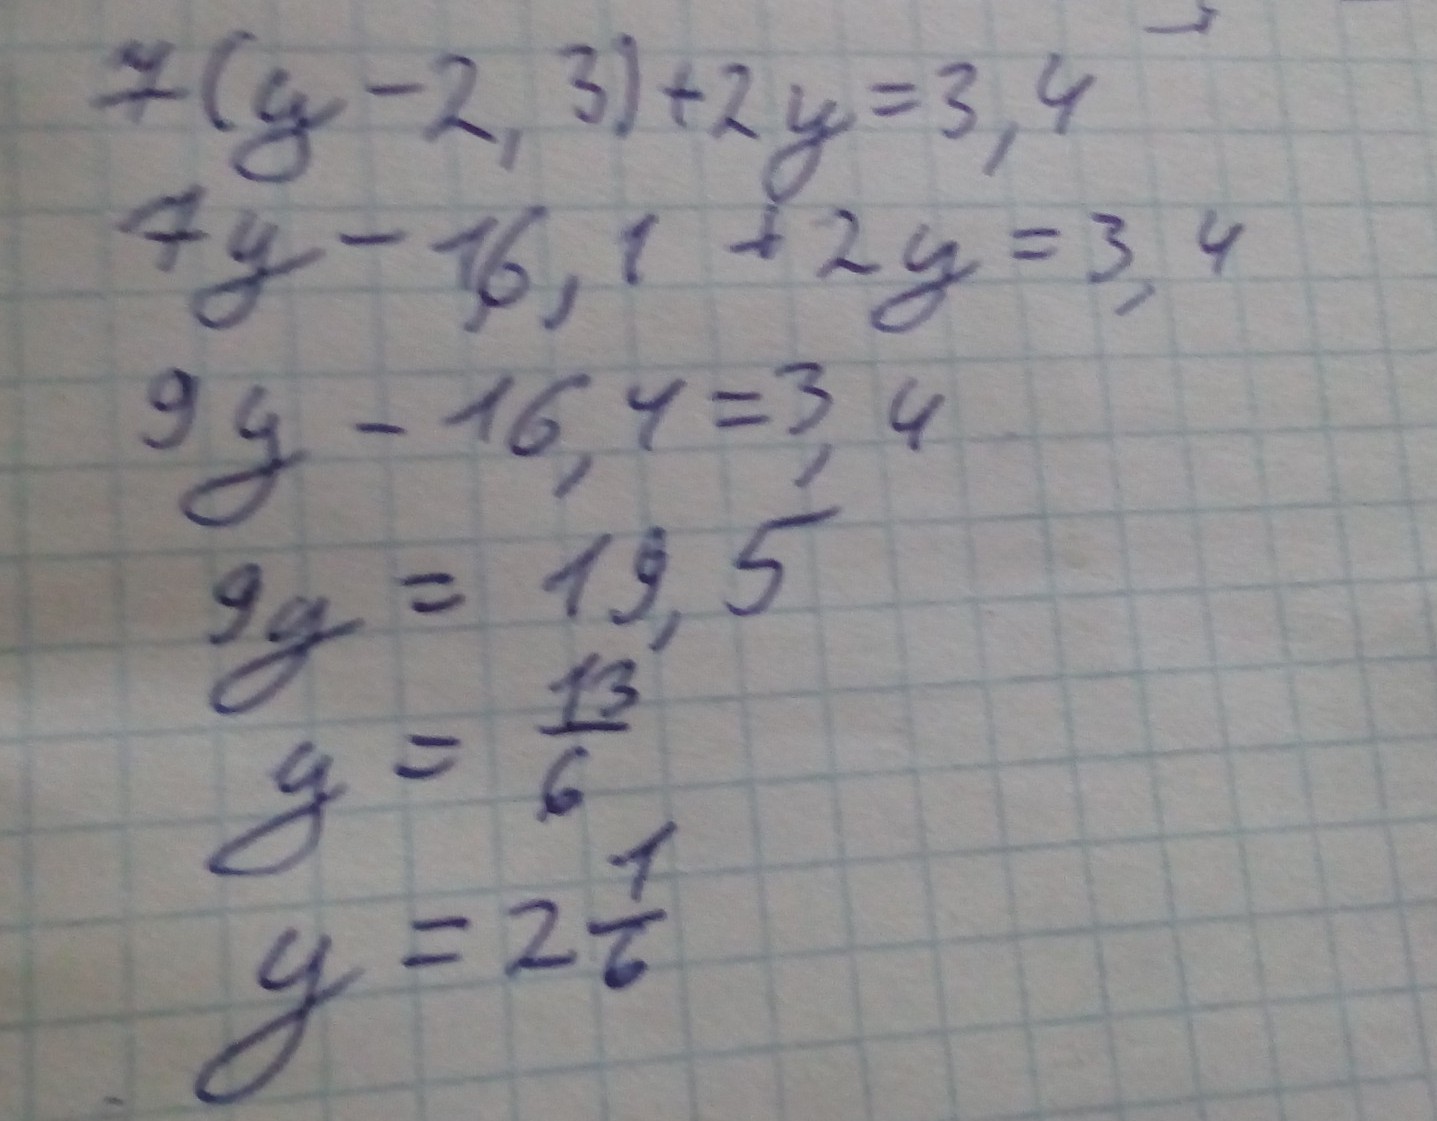 7(y-2,3)+2y=3,4
7y-16,1+2y=3,4
9y-16,1=3,4
9y=19,5
y=13/6
y=2 1/6